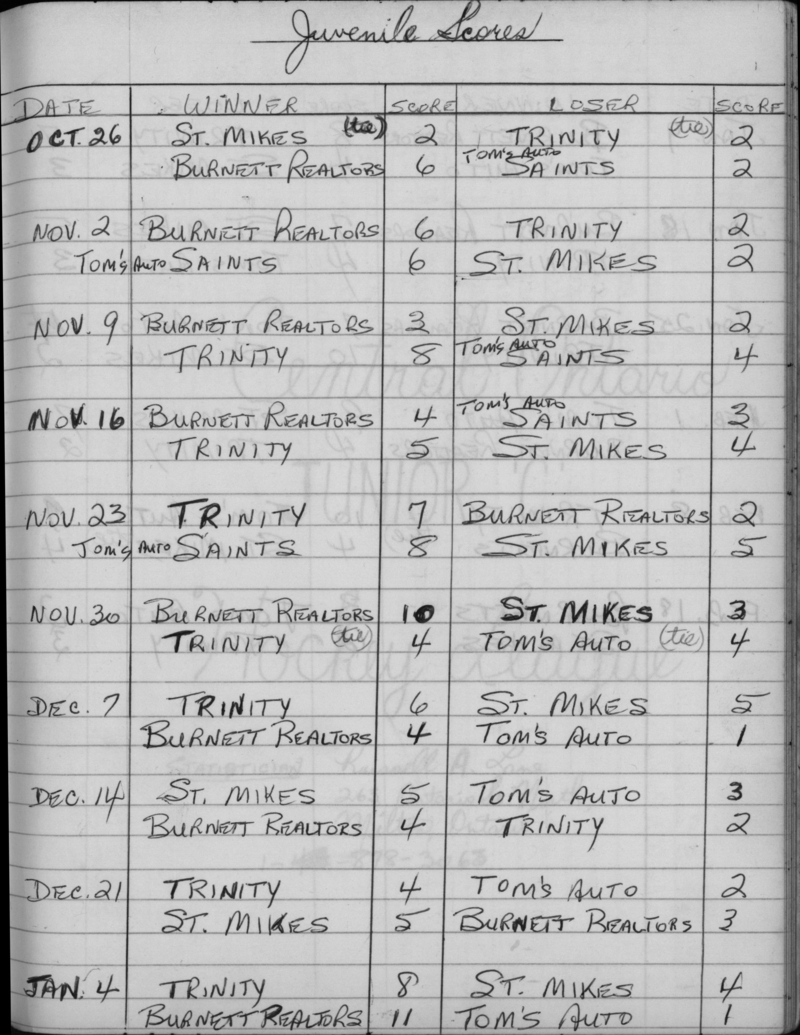 Juvenile Scores
DATE WINNER SCORE LOSER SCORE
OCT. 26 ST. MIKES (tie) 2 TRINITY (tie) 2
BURNETT REALTORS 6 TOM'S AUTO SAINTS 2
NOV. 2 BURNETT REALTORS 6 TRINITY 2
TOM'S AUTO SAINTS 6 ST. MIKES 2
NOV. 9 BURNETT REALTORS 3 ST. MIKES 2
TRINITY 8 TOM'S AUTO SAINTS 4
NOV. 16 BURNETT REALTORS 4 TOM'S AUTO SAINTS 3
TRINITY 5 ST. MIKES 4
NOV. 23 TRINITY 7 BURNETT REALTORS 2
TOM'S AUTO SAINTS 8 ST. MIKES 5
NOV. 30 BURNETT REALTORS 10 ST. MIKES 3
TRINITY (tie) 4 TOM'S AUTO (tie) 4
DEC. 7 TRINITY 6 ST. MIKES 5
BURNETT REALTORS 4 TOM'S AUTO 1
DEC. 14 ST. MIKES 5 TOM'S AUTO 3
BURNETT REALTORS 4 TRINITY 2
DEC. 21 TRINITY 4 TOM'S AUTO 2
ST. MIKES 5 BURNETT REALTORS 3
JAN. 4 TRINITY 8 ST. MIKES 4
BURNETT REALTORS 11 TOM'S AUTO 1